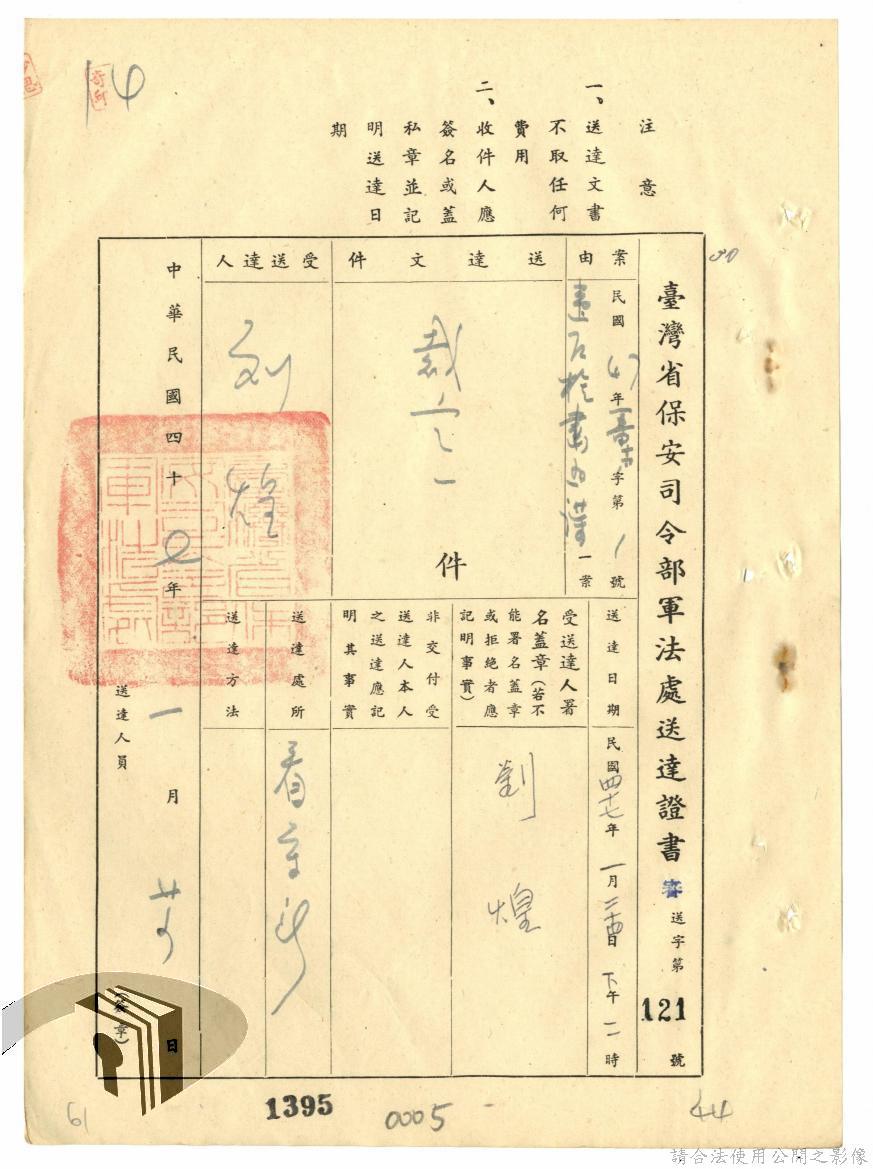 14
注意
一、送達文書
不取任何
費用
二、收件人應
簽名或蓋
私章並記
明送達日
期
30
臺灣省保安司令部軍法處送達證書 審 送字第121號
案由
民國47年 字第1號
一案
送達文件
裁定一件
受送達人
劉煌
送達日期
民國四十七年一月二十四日下午二時
受送達人署
名蓋章(若不
能署名蓋章
或拒絕者應
記明事實)
劉煌
非交付受
送達人本人
之送達應記
明其事實
送達處所
看守所
送達方法
中華民國四十七年一月廿四日
送達人員
(簽章)
61
1395
0005
44
請合法使用公開之影像